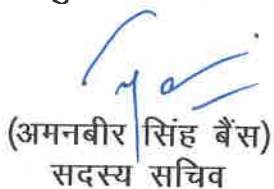 (अमनबीर सिंह बैंस)
सदस्य सचिव